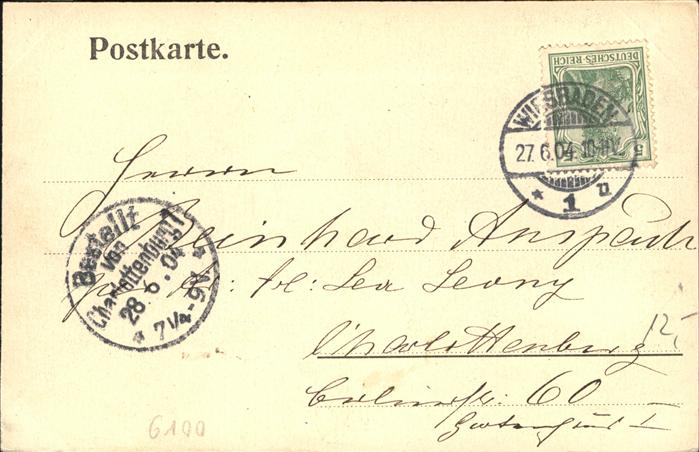 Postkarte.
DEUTSCHES REICH
5
WIESBADEN.
27.6.04.10-11V.
* 1 n
Herrn
Reinhard Anspach
Bestellt
vom
Charlottenburg 1
28.6.04
* 7 1/2-9V. *
Lea Leony
Charlottenburg
12
Berlinerstr. 60
Gartenhaus I
6100